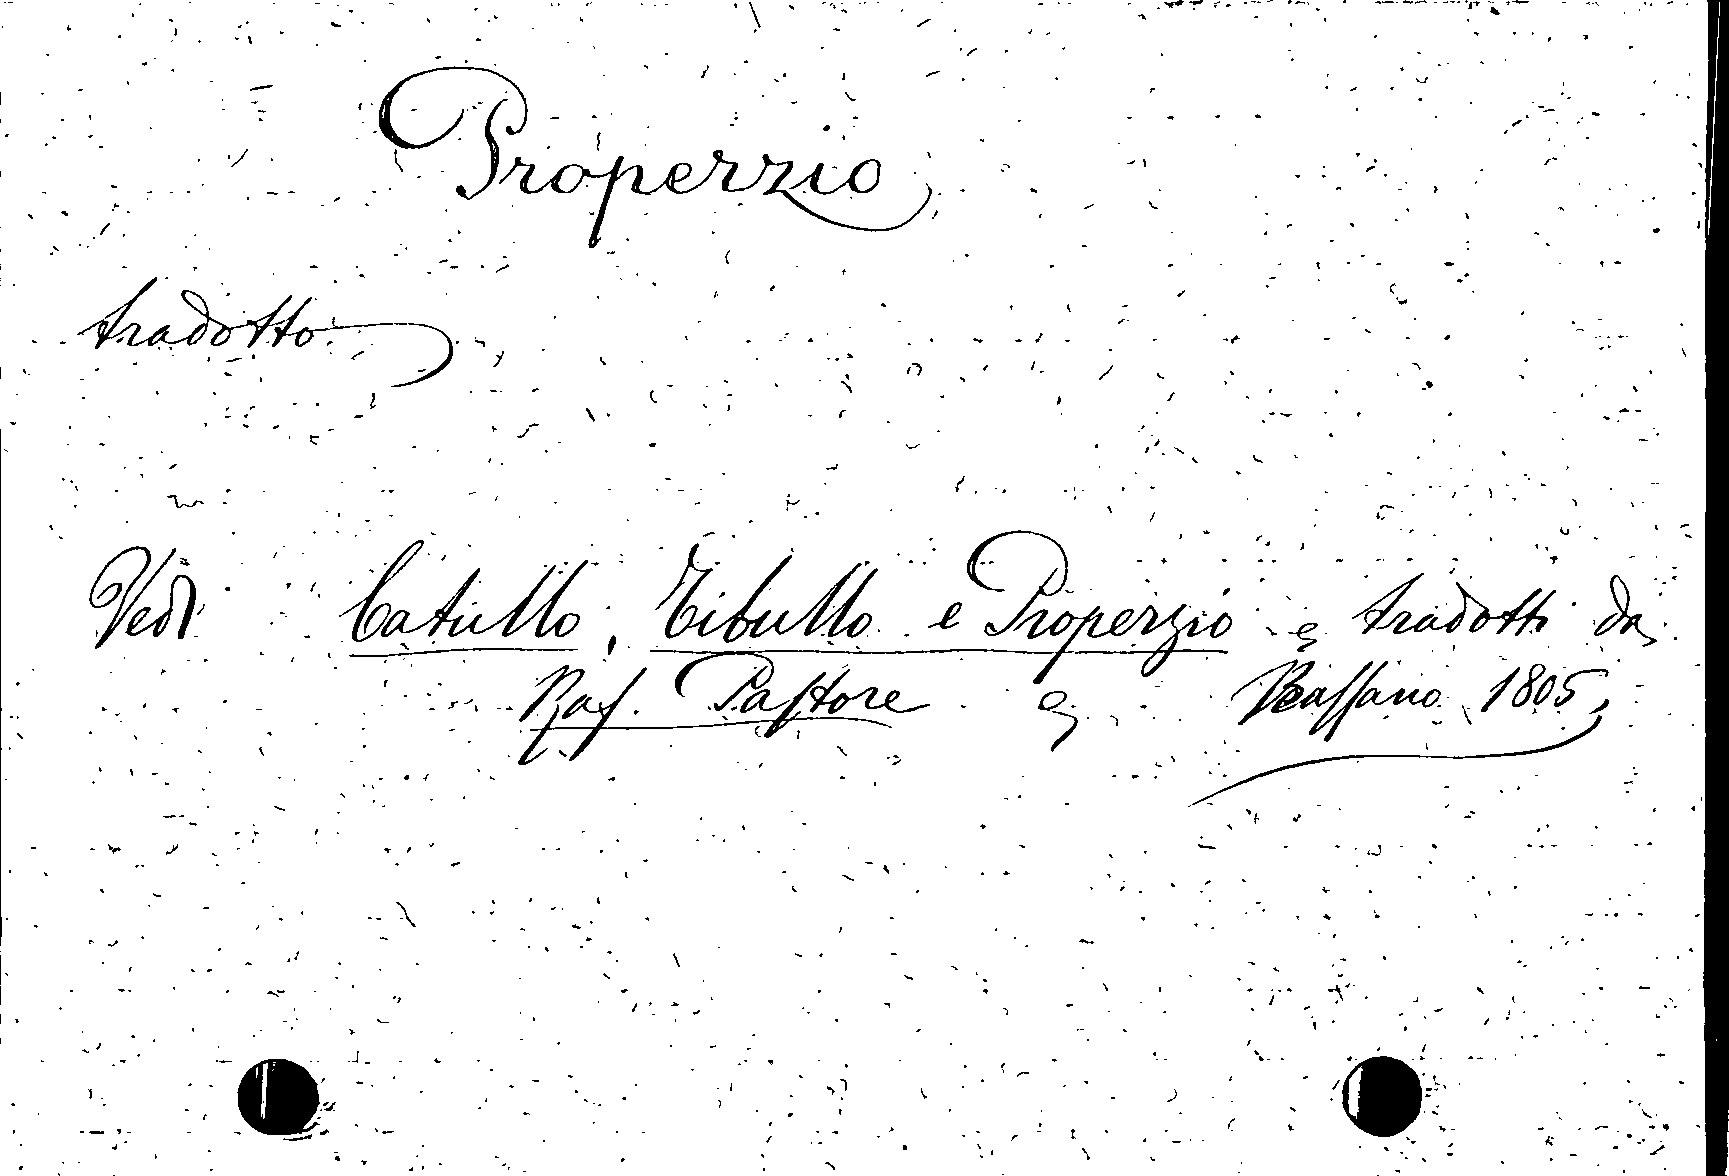 Properzio
tradotto
Vedi Catullo, Tibullo e Properzio, tradotti da
Raf. Pastore, Bassano 1805,